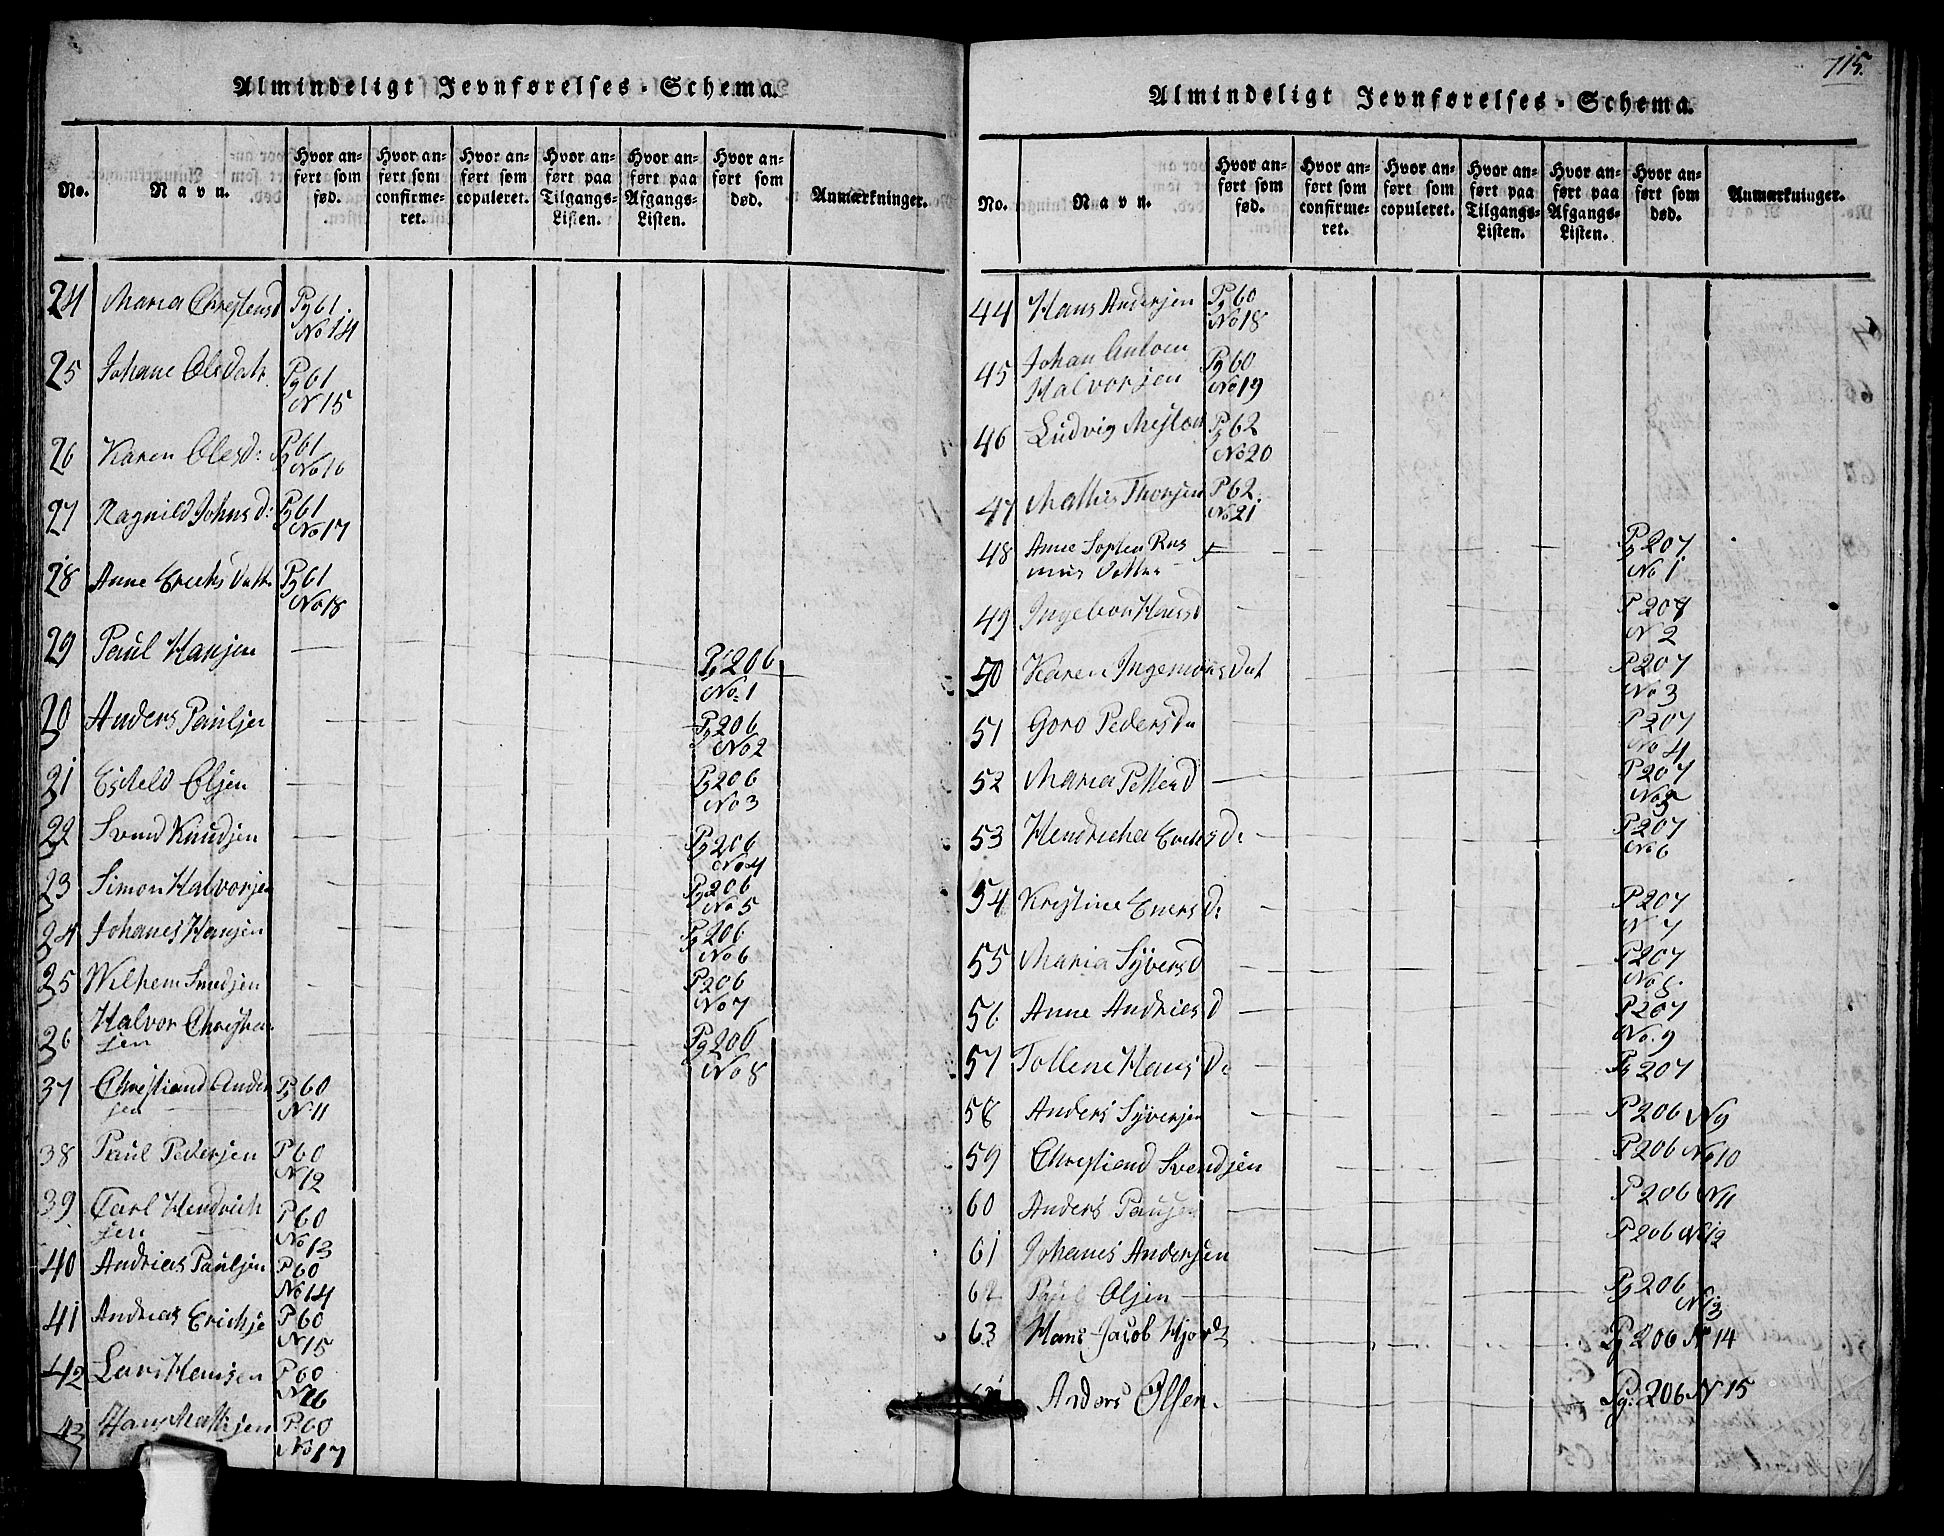 Almindeligt Jevnførelses-Schema.
No.
Navn.
Hvor an-
ført som
fød.
Hvor an-
ført som
confirme-
ret.
Hvor an-
ført som
copuleret.
Hvor an-
ført paa
Tilgangs-
Listen.
Hvor an-
ført paa
Afgangs-
Listen.
Hvor an-
ført som
død.
Anmærkninger.
24 Maria Chrestensd Pg 61.
No 14
25 Johane Olsdatr Pg 61
N 15
26 Karen Olesd: Pg 61
No 16
27 Ragnild Johns d: Pg 61
No 17
28 Anne Erichs Datr Pg 61
No 18
29 Paul Hansen Pg 206
No. 1
30 Anders Paulsen Pg 206
No 2
31 Eskeld Olsen Pg 206
No 3
32 Svend Knudsen Pg 206
No 4
33 Simon Halvorsen Pg 206
No 5
34 Johanes Hansen Pg 206
No 6
35 Wilhem Smedsen P 206
No 7
36 Halvor Christen
sen Pg 206
No 8
37 Christiand Ander Pg 60
sen N 11
38 Paul Pedersen P 60
N 12
39 Carl Hendrich
sen P 60
No 13
40 Andreas Paulsen P 60
No 14
41 Andreas Erichse P 60
N 15
42 Lars Hansen P 60
N 16
43 Hans Mathsen P 60
No 17
115.
Almindeligt Jevnførelses-Schema.
No.
Navn.
Hvor an-
ført som
fød.
Hvor an-
ført som
confirme-
ret.
Hvor an-
ført som
copuleret.
Hvor an-
ført paa
Tilgangs-
Listen.
Hvor an-
ført paa
Afgangs-
Listen.
Hvor an-
ført som
død.
Anmærkninger.
44 Hans Andersen Pg 60
No 18
45 Johan
Halvorsen Pg 60
No 19
46 Ludvig Pg 62
No 20
47 Mathis Thorsen P 62.
No 21
48 Anne Sophia Ras
mus Datter Pg 207
No 1
49 Ingebor Hansd P 207
N 2
50 Karen Ingemons Dat P 207
No 3
51 Goro Peders Da P 207
No 4
52 Maria Petterd P 207
No 5
53 Hendricha Erichs D: P 207
No 6
54 Kristine Eners D: P 207
N 7
55 Maria Syversd P 207
No 8.
56 Anne Andriesd P 207
No. 9
57 Tollene Hans D: Pg 207
58 Anders Syversen P 206 N 9
59 Chrestiand Svendsen P 206 No 10
60 Anders Pausen P 206 N 11
61 Johanes Andersen P 206 No 12
62 Paul Olsen Pg 206
N 13
63 Hans Jacob Hjord Pg 206 No 14
Anders Olsen. Pg. 206 N 15